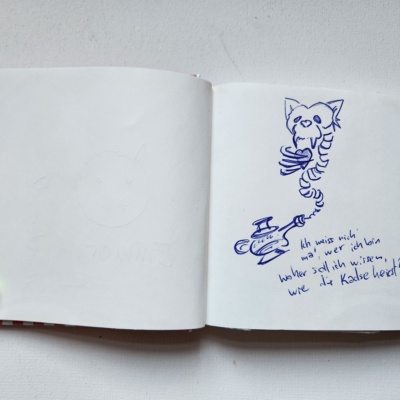 Ich weiss nich
ma', wer ich bin
woher soll ich wissen,
wie die Katse heist?